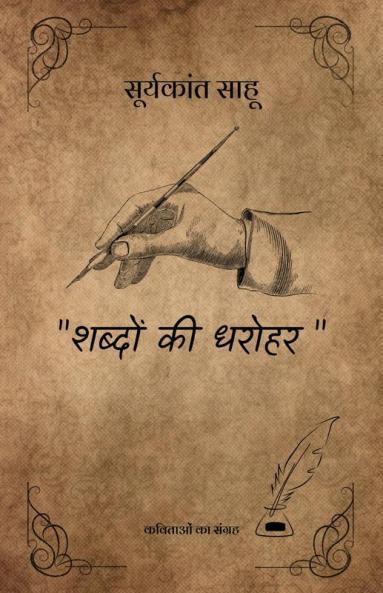 सूर्यकांत साहू
"शब्दों की धरोहर "
कविताओं का संग्रह